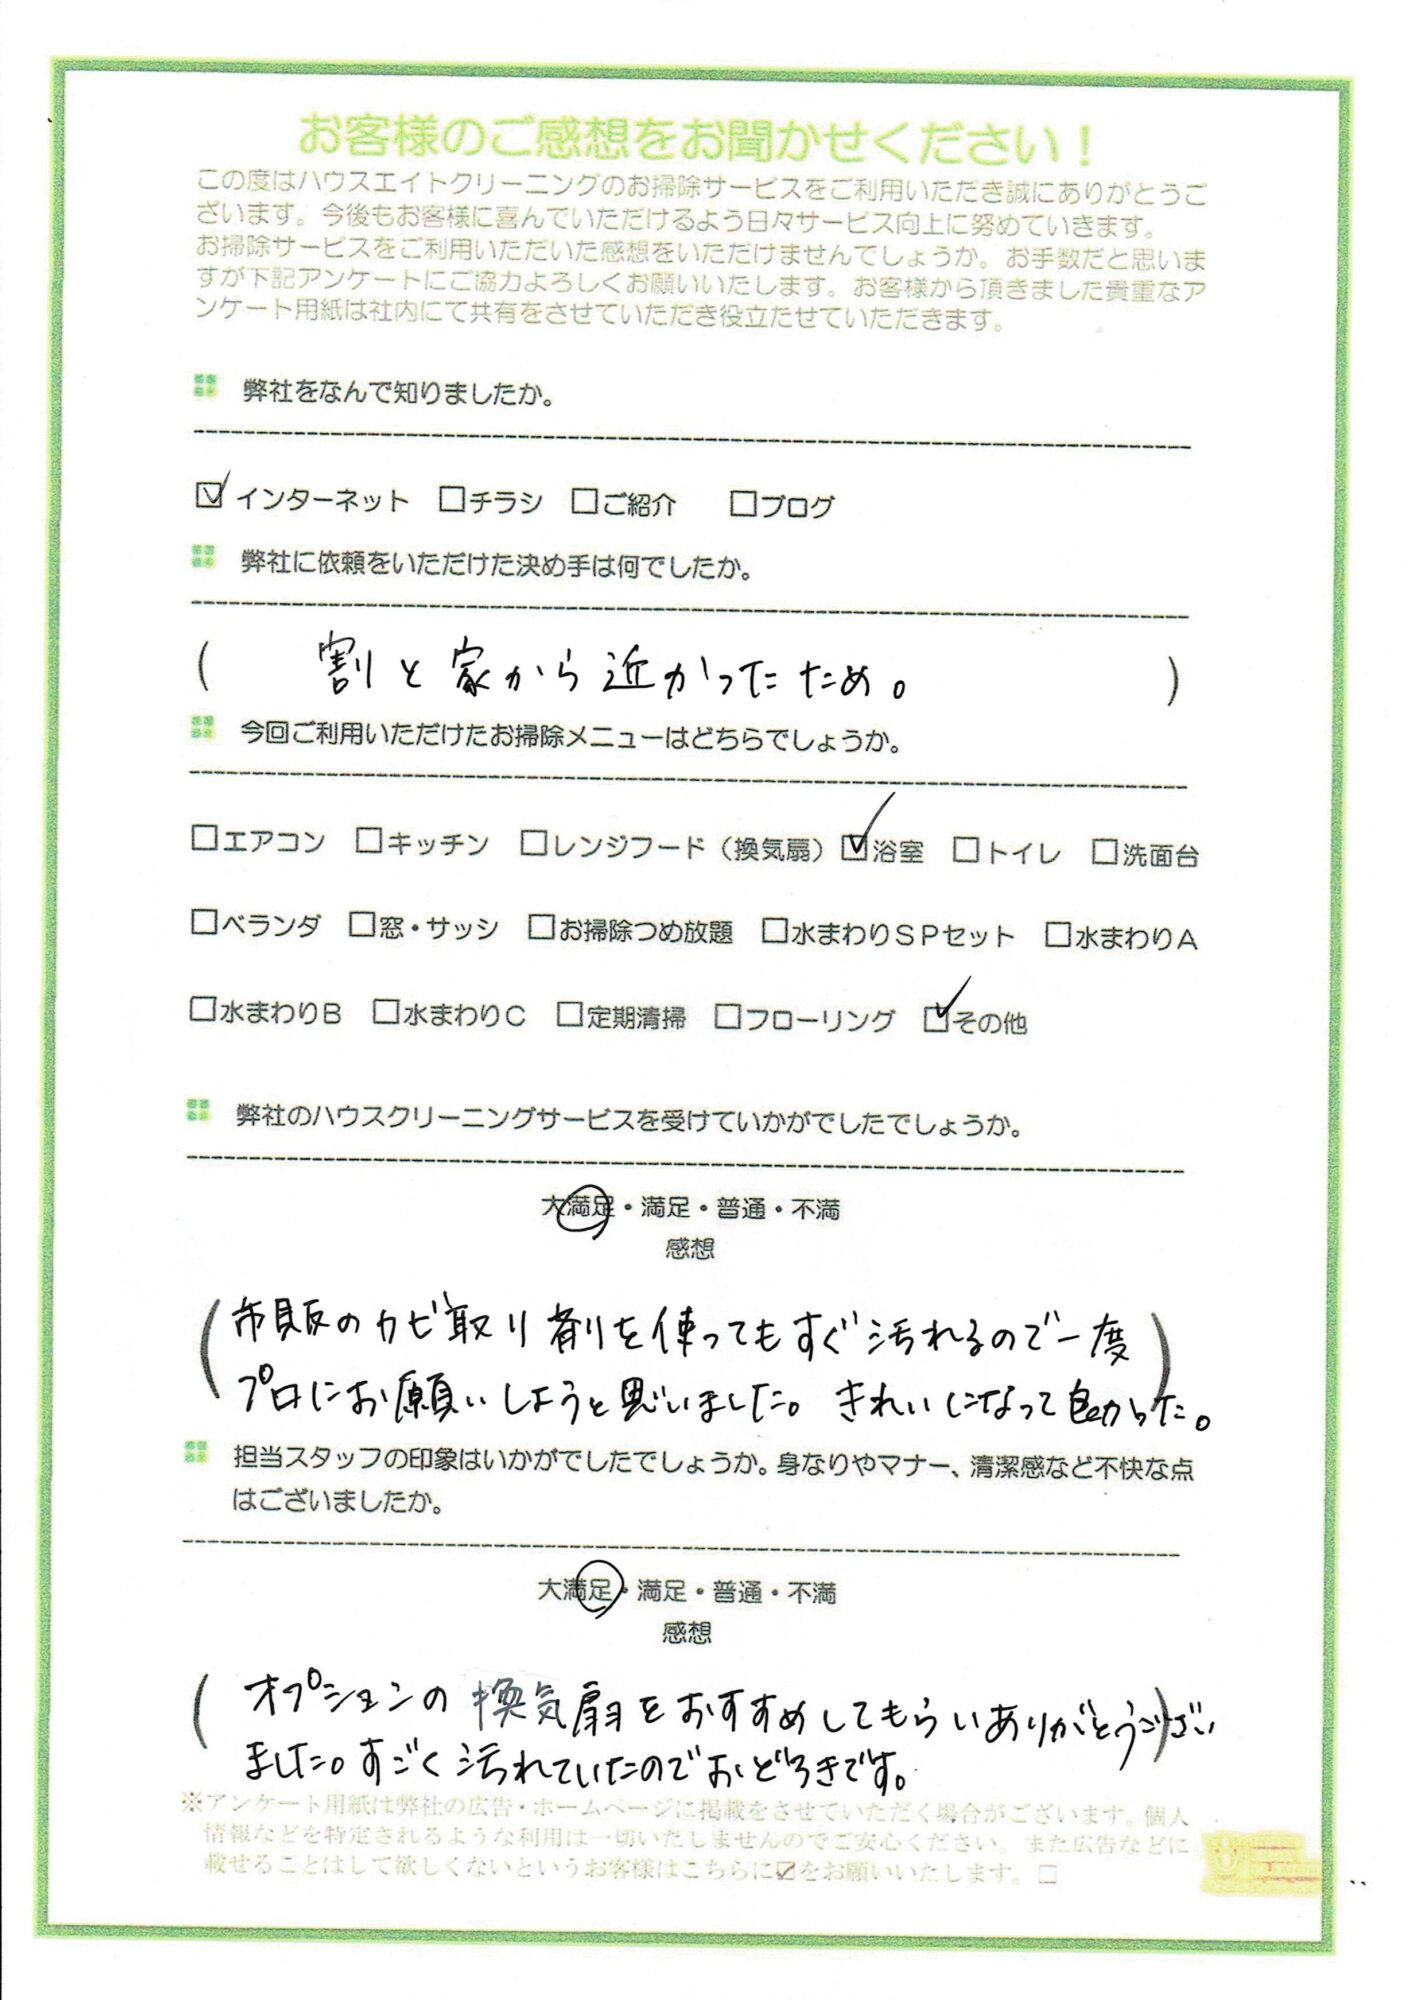 お客様のご感想をお聞かせください！
この度はハウスエイトクリーニングのお掃除サービスをご利用いただき誠にありがとうご
ざいます。今後もお客様に喜んでいただけるよう日々サービス向上に努めていきます。
お掃除サービスをご利用いただいた感想をいただけませんでしょうか。お手数だと思いま
すが下記アンケートにご協力よろしくお願いいたします。お客様から頂きました貴重なア
ンケート用紙は社内にて共有をさせていただき役立たせていただきます。
弊社をなんで知りましたか。
☑インターネット □チラシ □ご紹介 □ブログ
弊社に依頼をいただけた決め手は何でしたか。
( 割と家から近かったため。 )
今回ご利用いただけたお掃除メニューはどちらでしょうか。
□エアコン □キッチン □レンジフード（換気扇） ☑浴室 □トイレ □洗面台
□ベランダ □窓・サッシ □お掃除つめ放題 □水まわりＳＰセット □水まわりＡ
□水まわりＢ □水まわりＣ □定期清掃 □フローリング ☑その他
弊社のハウスクリーニングサービスを受けていかがでしたでしょうか。
大満足・満足・普通・不満
感想
(市販のカビ取り剤を使ってもすぐ汚れるので一度)
プロにお願いしようと思いました。きれいになって良かった。
担当スタッフの印象はいかがでしたでしょうか。身なりやマナー、清潔感など不快な点
はございましたか。
大満足・満足・普通・不満
感想
(オプションの換気扇をおすすめしてもらいありがとうござい)
ました。すごく汚れていたのでおどろきです。
※アンケート用紙は弊社の広告・ホームページに掲載をさせていただく場合がございます。個人
情報などを特定されるような利用は一切いたしませんのでご安心ください。また広告などに
載せることはして欲しくないというお客様はこちらに☑をお願いいたします。□